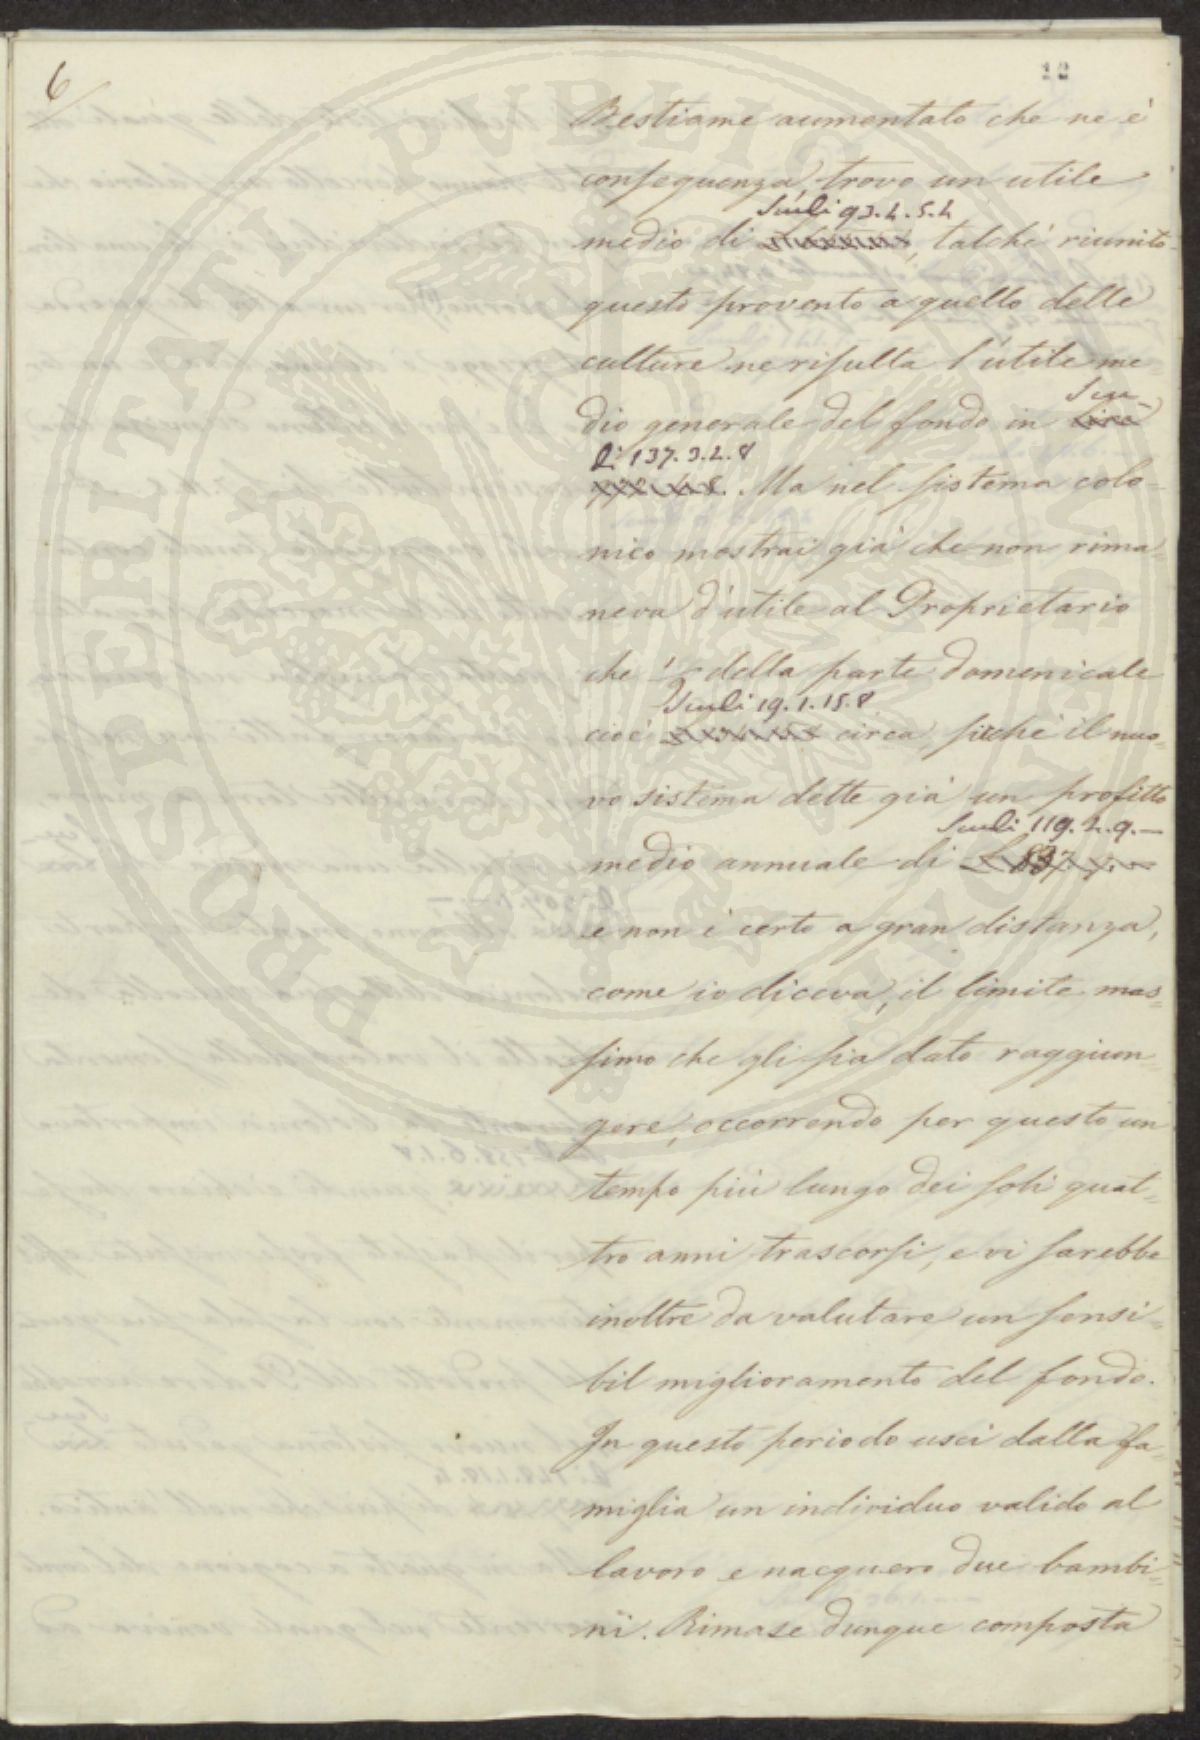 6
12
Bestiame aumentato che ne è
conseguenza, trovo un utile
Scudi 93.2.5.4
medio di, talché riunito
questo provento a quello delle
culture ne risulta l'utile me-
Scu-
dio generale del fondo in Lire
di 137.3.2.8
. Ma nel sistema colo-
nico mostrai già che non rima-
neva d'utile al Proprietario
che della parte domenicale
Scudi 19.1.15.8
cioè circa, sicché il nuo-
vo sistema dette già un profitto
Scudi 119.2.9.—
medio annuale di
e non è certo a gran distanza,
come io diceva, il limite mas-
simo che gli sia dato raggiun-
gere, occorrendo per questo un
tempo più lungo dei soli quat-
tro anni trascorsi, e vi sarebbe
inoltre da valutare un sensi-
bil miglioramento del fondo.
In questo periodo uscì dalla fa-
miglia un individuo valido al
lavoro e nacquero due bambi-
ni. Rimase dunque composta
PROSPERITATI PUBLICAE AUGENDAE